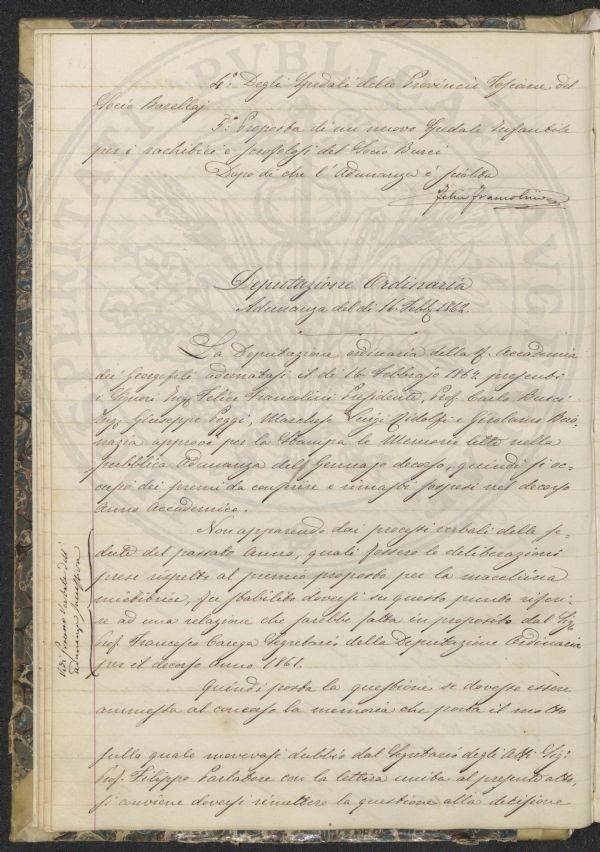 4.º Degli Spedali delle Provincie Toscane del
Socio Barellaj
5.º Proposta di un nuovo Spedale Infantile
per i rachitici e scrofolosi del Socio Burci
Dopo di che l'Adunanza è sciolta
Felice Francolini
Deputazione Ordinaria
Adunanza del dì 16. Febb. 1862.
La Deputazione ordinaria della R. Accademia
dei Georgofili adunatasi il dì 16 Febbrajo 1862 presenti
i Signori Ing. Felice Francolini Presidente, Prof. Carlo Burci
Ing. Giuseppe Poggi, Marchese Luigi Ridolfi e Girolamo Buo
nazia approvò per la Stampa le Memorie lette nella
pubblica Adunanza dell Gennajo decorso, quindi si oc-
cupò dei premi da conferire e rimasti sospesi nel decorso
Anno Accademico.
Non apparendo dai processi verbali delle se-
dute del passato Anno, quali fossero le deliberazioni
prese rispetto al premio proposto per la macchina
mietitrice, fu stabilito doversi su questo punto riferi-
re ad una relazione che sarebbe fatta in proposito dal Sig.
Prof. Francesco Carega Segretario della Deputazione Ordinaria
per il decorso Anno 1861.
Vedi Processo Verbale dell'
adunanza successiva
Quindi posta la questione se dovesse essere
ammessa al concorso la memoria che porta il motto
sulla quale movevasi dubbio dal Segretario degli Atti Sig.
Prof. Filippo Parlatore con la lettera unita al presente atto,
si conviene doversi rimettere la questione alla decisione
SPERITATI PVBLICAE AVGE